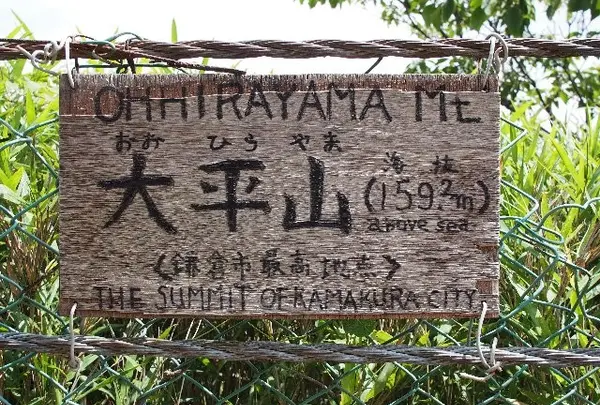 OHHIRAYAMA Mt
おお ひら やま 海抜
大平山 (159.2m)
above sea
〈鎌倉市最高地点〉
THE SUMMIT OF KAMAKURA CITY